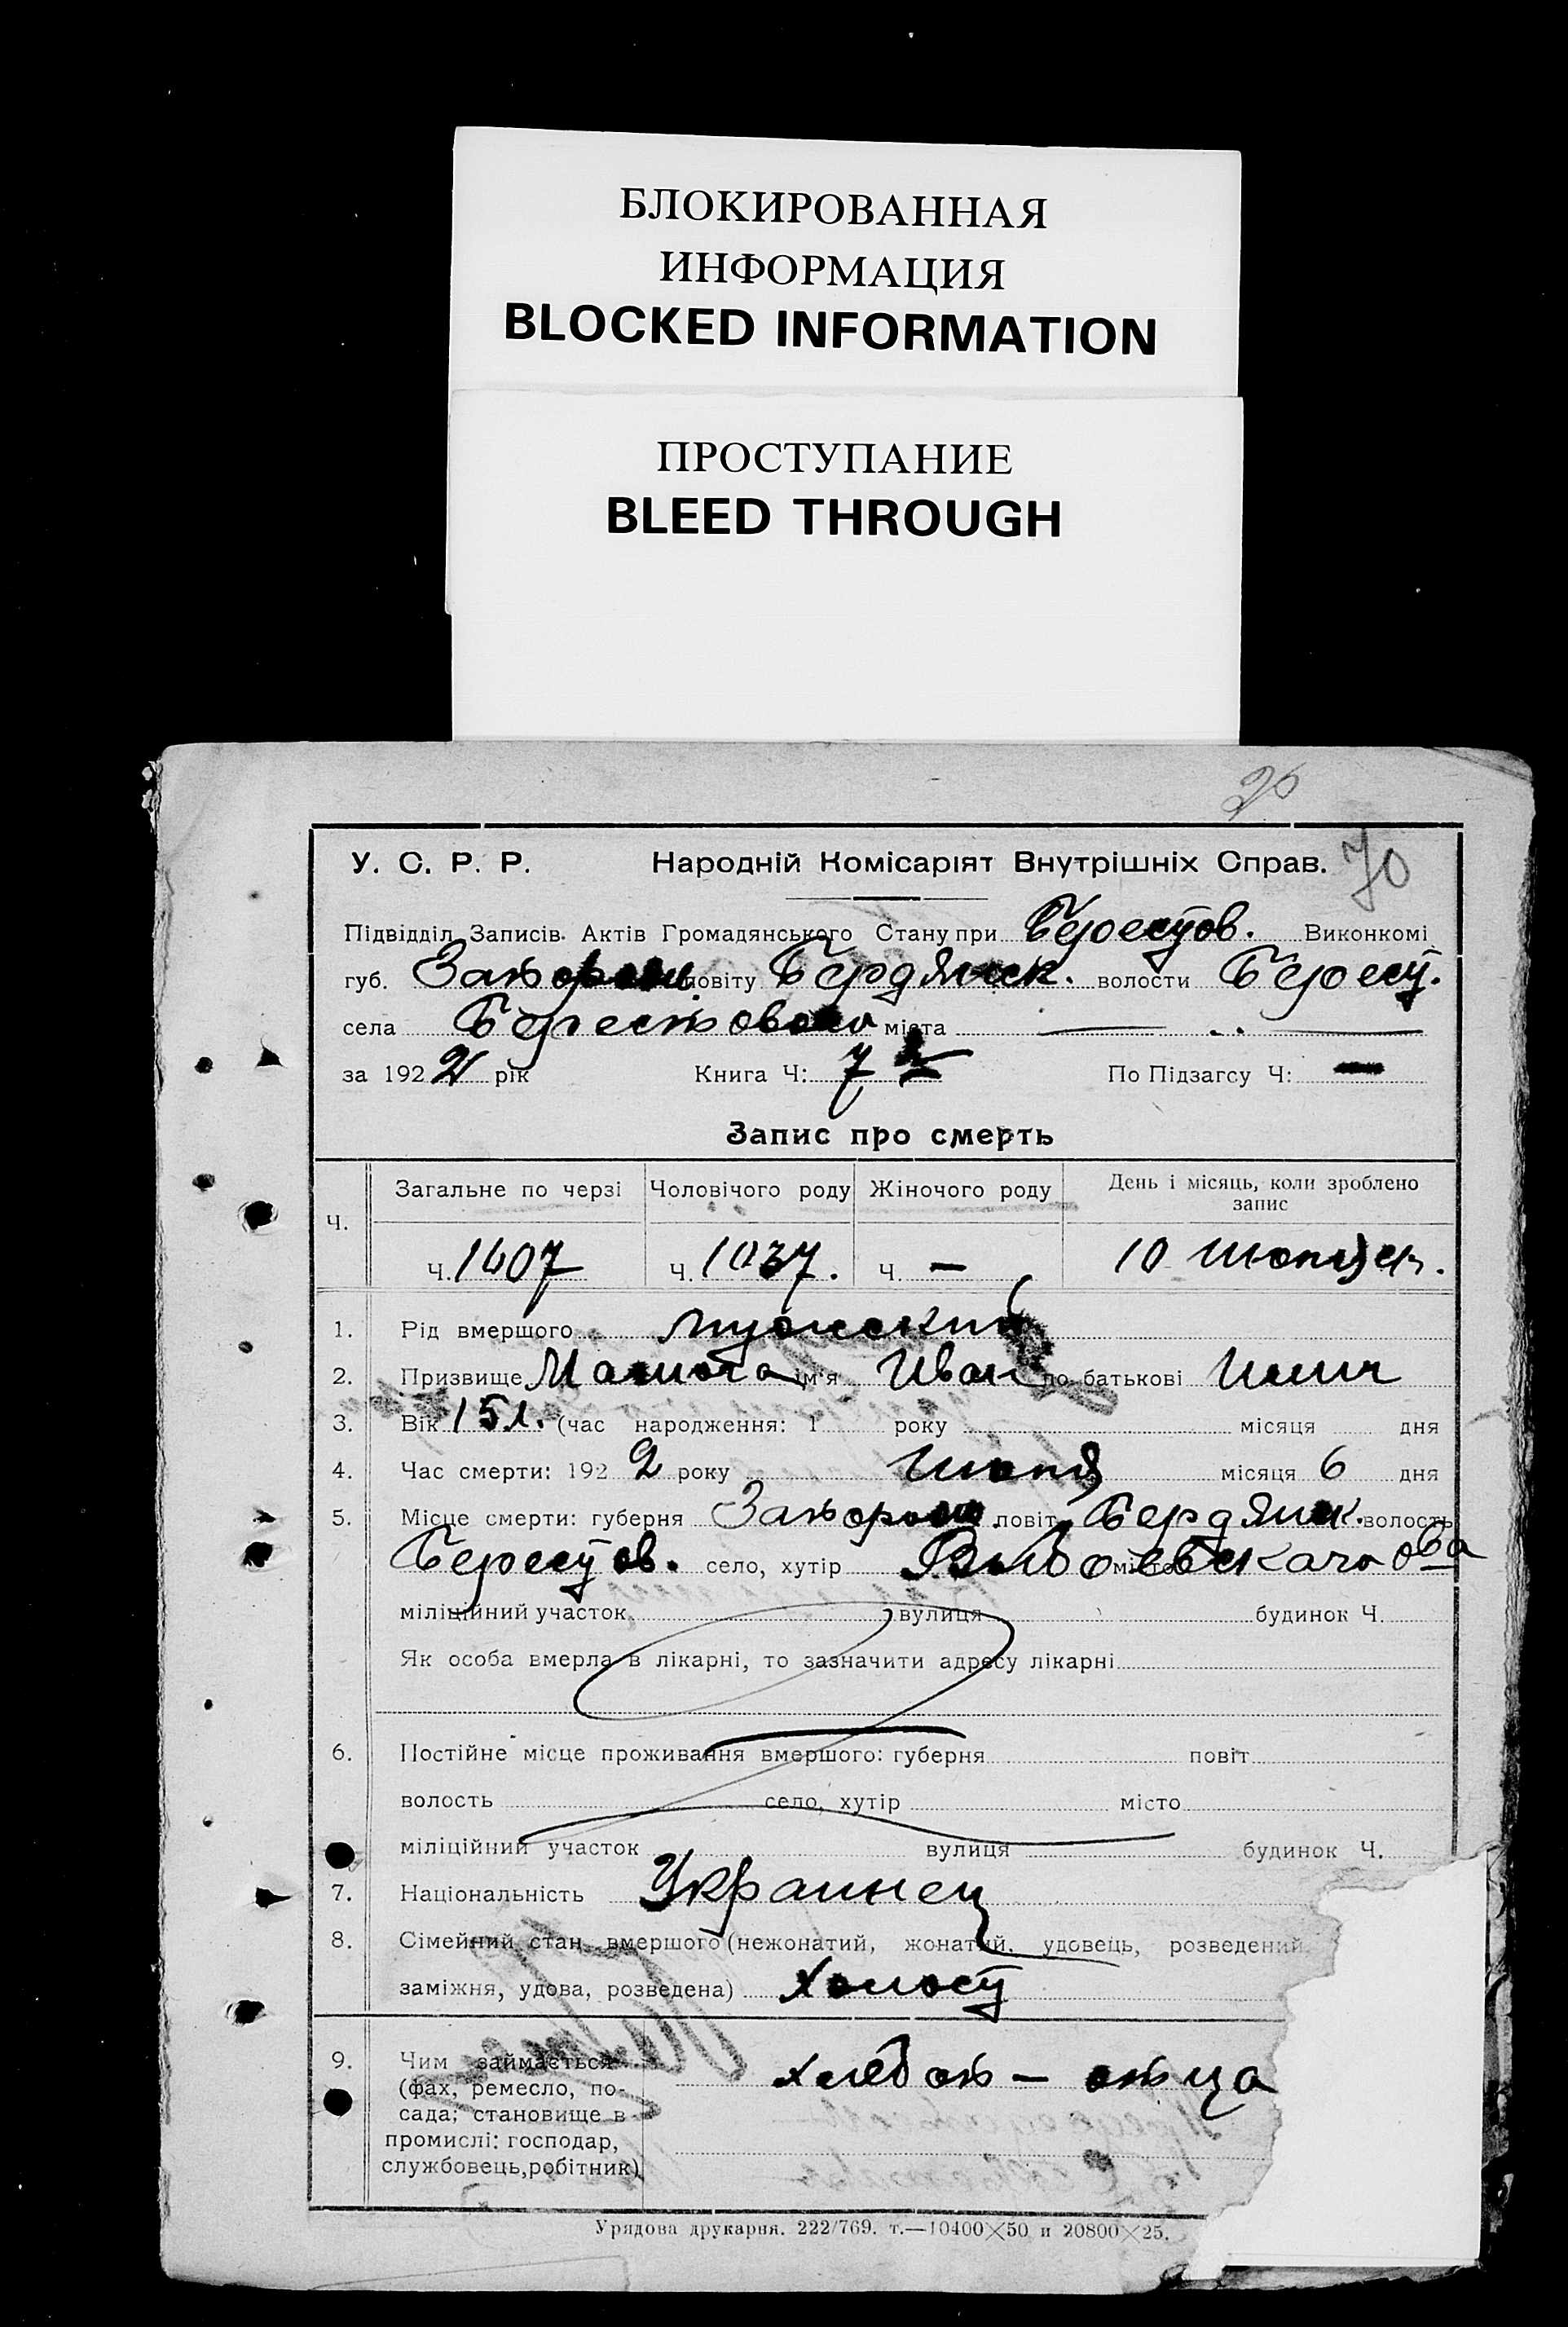 БЛОКИРОВАННАЯ
ИНФОРМАЦИЯ
BLOCKED INFORMATION
ПРОСТУПАНИЕ
BLEED THROUGH
70
У. С. Р. Р. Народній Комісаріят Внутрішніх Справ.
Підвідділ Записів Актів Громадянського Стану при Берестов. Виконкомі
губ. повіту Бердянск. волости Берест.
села міста —
за 1922 рік Книга Ч: 7 По Підзагсу Ч: —
Запис про смерть
Ч. Загальне по черзі Чоловічого роду Жіночого роду День і місяць, коли зроблено
запис
Ч. 1607 Ч. 1037. Ч. — 10
1. Рід вмершого мужский
2. Призвище ім'я Иван по батькові Илич
3. Вік 15 л. (час народження: 1 року місяця дня
4. Час смерти: 1922 року місяця 6 дня
5. Місце смерти: губерня повіт Бердянск. волость
Берестов. село, хутір місто
міліційний участок вулиця будинок Ч.
Як особа вмерла в лікарні, то зазначити адресу лікарні
6. Постійне місце проживання вмершого: губерня повіт
волость село, хутір місто
міліційний участок вулиця будинок Ч.
7. Національність Украинец
8. Сімейний стан вмершого (нежонатий, жонатий, удовець, розведений
заміжня, удова, розведена) Холост
9. Чим займається хлебоп — отца
(фах, ремесло, по-
сада; становище в
промислі: господар,
службовець, робітник)
Урядова друкарня. 222/769. т.—10400×50 и 20800×25.